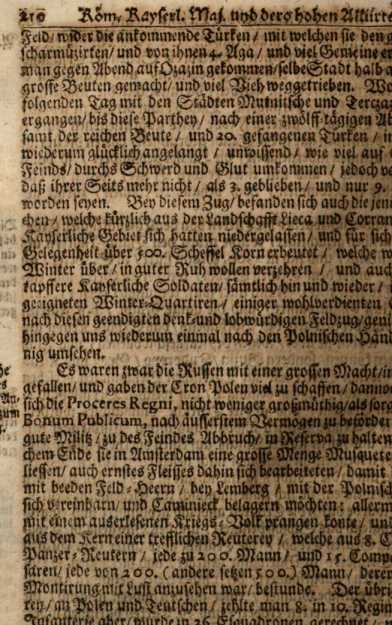 210 Röm. Kayserl. Maj. und dero hohen Alliirte
Feld/ wider die ankommende Türken/ mit welchen sie den
scharmüzirten/ und von ihnen 4. Aga/ und viel Gemeine er
man gegen Abend auf Ozazin gekommen/ selbe Stadt halb
grosse Beuten gemacht/ und viel Vieh weggetrieben.
folgenden Tag mit den Städten Mutnitsche und
ergangen/ bis diese Parthey/ nach einer zwölff-tägigen
samt der reichen Beute/ und 20. gefangenen Türken/
wiederum glücklich angelangt/ unwissend/ wie viel auf
Feinds/ durchs Schwerd und Glut umkommen/ jedoch
daß ihrer Seits mehr nicht/ als 3. geblieben/ und nur 9.
worden seyen. Bey diesem Zug/ befanden sich auch die jeni
chen/ welche kürzlich aus der Landschafft Lieca und
Kayserliche Gebiet sich hatten niedergelassen/ und für sich
Gelegenheit über 500. Scheffel Korn erbeutet/ welche
Winter über/ in guter Ruh wollen verzehren/ und auch
tapffere Kayserliche Soldaten/ sämtlich hin und wieder/
geeigneten Winter-Quartiren/ einiger wohlverdienten
nach diesen geendigten denk- und lobwürdigen Feldzug/
hingegen uns wiederum einmal nach den Polnischen Händ
nig umsehen.
Es waren zwar die Russen mit einer grossen Macht/
gefallen/ und gaben der Cron Polen viel zu schaffen/ danno
sich die Proceres Regni, nicht weniger großmüthig/ als
Bonum Publicum, nach äusserstem Vermögen zu beförder
gute Militz/ zu des Feindes Abbruch/ in Reserva zu halten
chem Ende sie in Amsterdam eine grosse Menge Musquete
liessen/ auch ernstes Fleisses dahin sich bearbeiteten/ damit
mit beeden Feld-Heern/ bey Lemberg/ mit der Polnisch
sich vereinbarn/ und Caminieck belagern möchten: allerm
mit einem auserlesenen Kriegs-Volk prangen konte/ und
aus dem Kern einer trefflichen Reuterey/ welche aus 8. C
Panzer-Reutern/ jede zu 200. Mann/ und 15. Comp
saren/ jede von 200. (andere setzen 500.) Mann/ deren
Montirung mit Lust anzusehen war/ bestunde. Der übri
rey/ an Polen und Teutschen/ zehlte man 8. in 10. Regim
Infanterie aber/ wurde in 26. Esquadronen gerechnet/